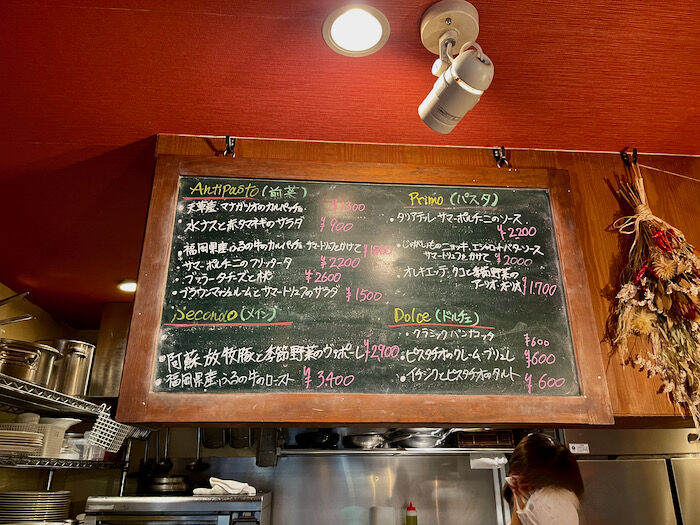 Antipasto (前菜)
天草産 マナガツオのカルパッチョ
・水ナスと赤タマネギのサラダ ¥900
・福岡県産ふるの牛のカルパッチョ サマートリュフかけて
・サマーポルチーニのフリッタータ ¥2200
・ブッラータチーズと桃 ¥2600
・ブラウンマッシュルームとサマートリュフのサラダ ¥1500
Secondo (メイン)
・阿蘇放牧豚と季節野菜のヴァポーレ ¥2900
・福岡県産ふるの牛のロースト ¥3400
Primo (パスタ)
・タリアテッレ サマーポルチーニのソース
¥2200
・じゃがいものニョッキ ゴルゴンゾーラバターソース
サマートリュフかけて ¥2000
・オレキエッテ タコと季節野菜の
アーリオ・オーリオ ¥1700
Dolce (ドルチェ)
・クラシックパンナコッタ ¥600
・ピスタチオのクレームブリュレ ¥600
・イチジクとピスタチオのタルト ¥600